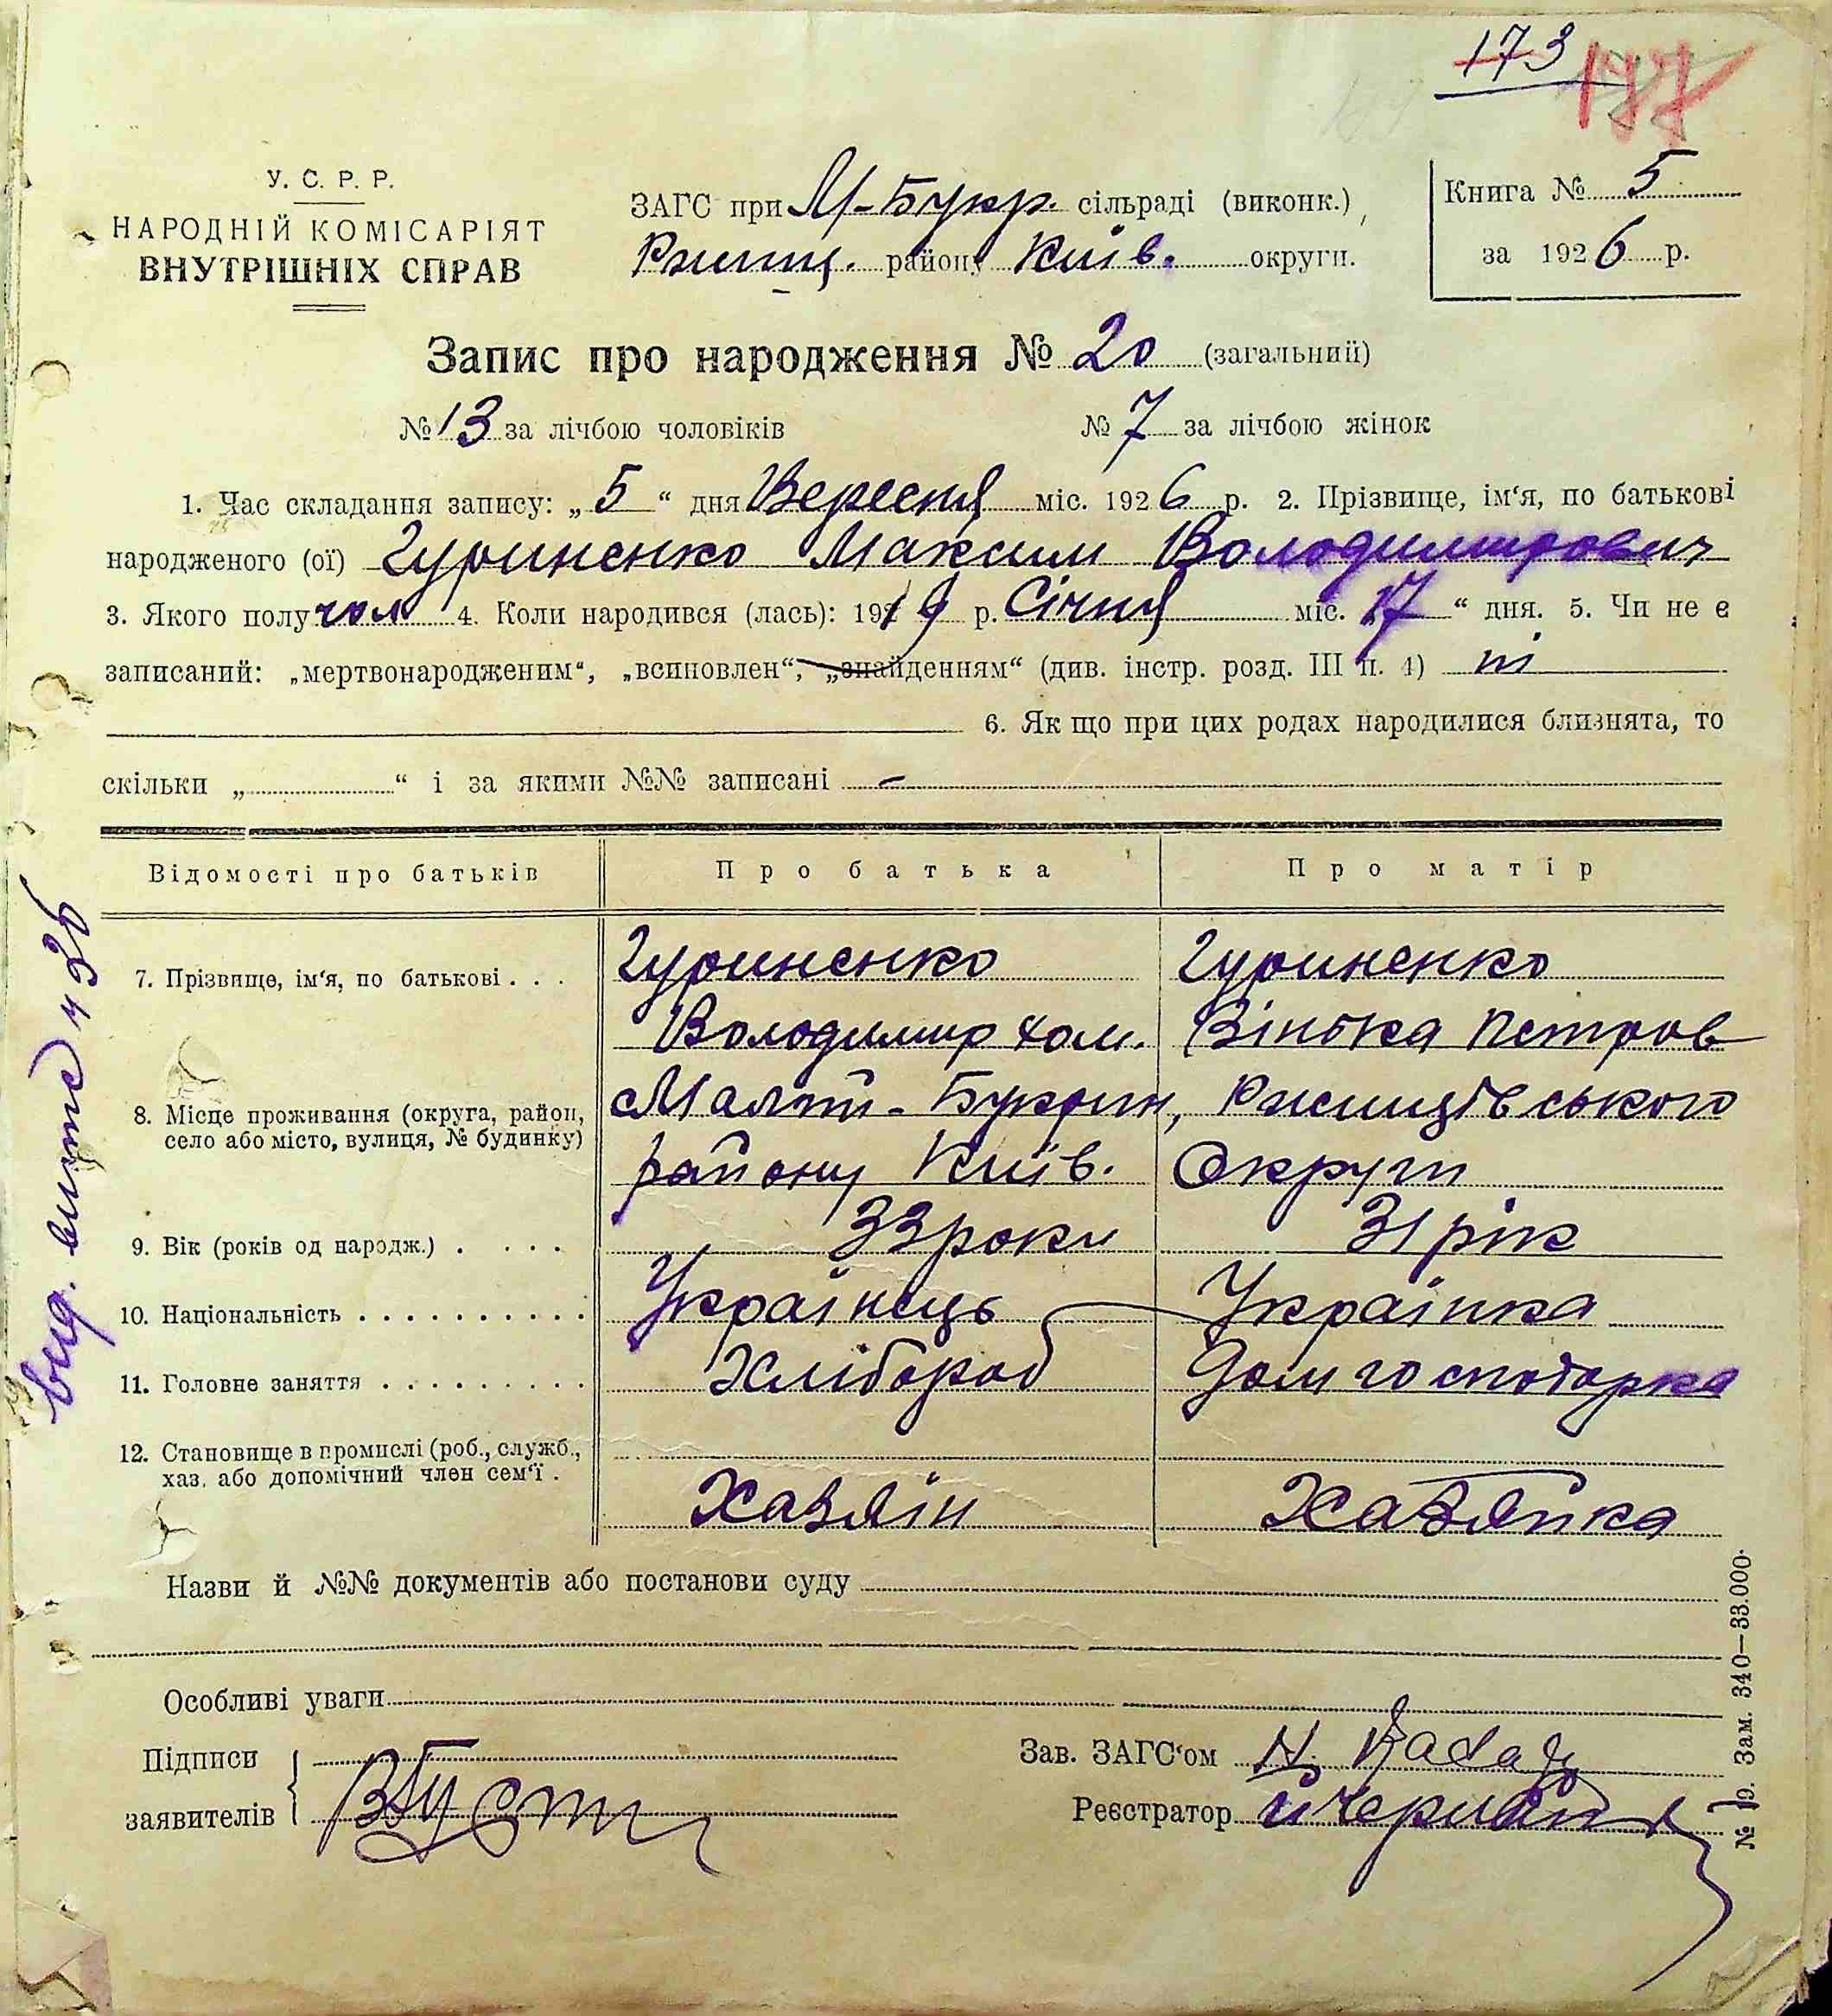 173 177
У. С. Р. Р.
НАРОДНІЙ КОМІСАРІЯТ
ВНУТРІШНІХ СПРАВ
ЗАГС при М-Букр. сільраді (виконк.)
Ржищ. району Київ. округи.
Книга № 5
за 1926 р.
Запис про народження № 20 (загальний)
№ 13 за лічбою чоловіків № 7 за лічбою жінок
1. Час складання запису: „ 5 “ дня Вересня міс. 1926 р. 2. Прізвище, ім‘я, по батькові
народженого (ої) Гуриненко Максим Володимирович
3. Якого полу чол 4. Коли народився (лась): 1919 р. Січня міс. 17 “ дня. 5. Чи не є
записаний: „мертвонародженим“, „всиновлен“, „знайденням“ (див. інстр. розд. III п. 4) ні
6. Як що при цих родах народилися близнята, то
скільки „ “ і за якими №№ записані –
Відомості про батьків Про батька Про матір
7. Прізвище, ім‘я, по батькові . . . Гуриненко Гуриненко
Володимир Хом. Зінька Петров
8. Місце проживання (округа, район, село або місто, вулиця, № будинку) Малий-Букрин, Ржищівського
району Київ. Округи
9. Вік (років од народж.) . . . . 33 роки 31 рік
10. Національність . . . . . . . . . . Українець Українка
11. Головне заняття . . . . . . . . . Хлібороб Домгосподарка
12. Становище в промислі (роб., служб., хаз. або допомічний член сем‘ї .
Хазяїн Хазяйка
Назви й №№ документів або постанови суду
Особливі уваги
Підписи
заявителів
Зав. ЗАГС‘ом
Реєстратор
№ 19. Зам. 340—33.000.
вид. витяг